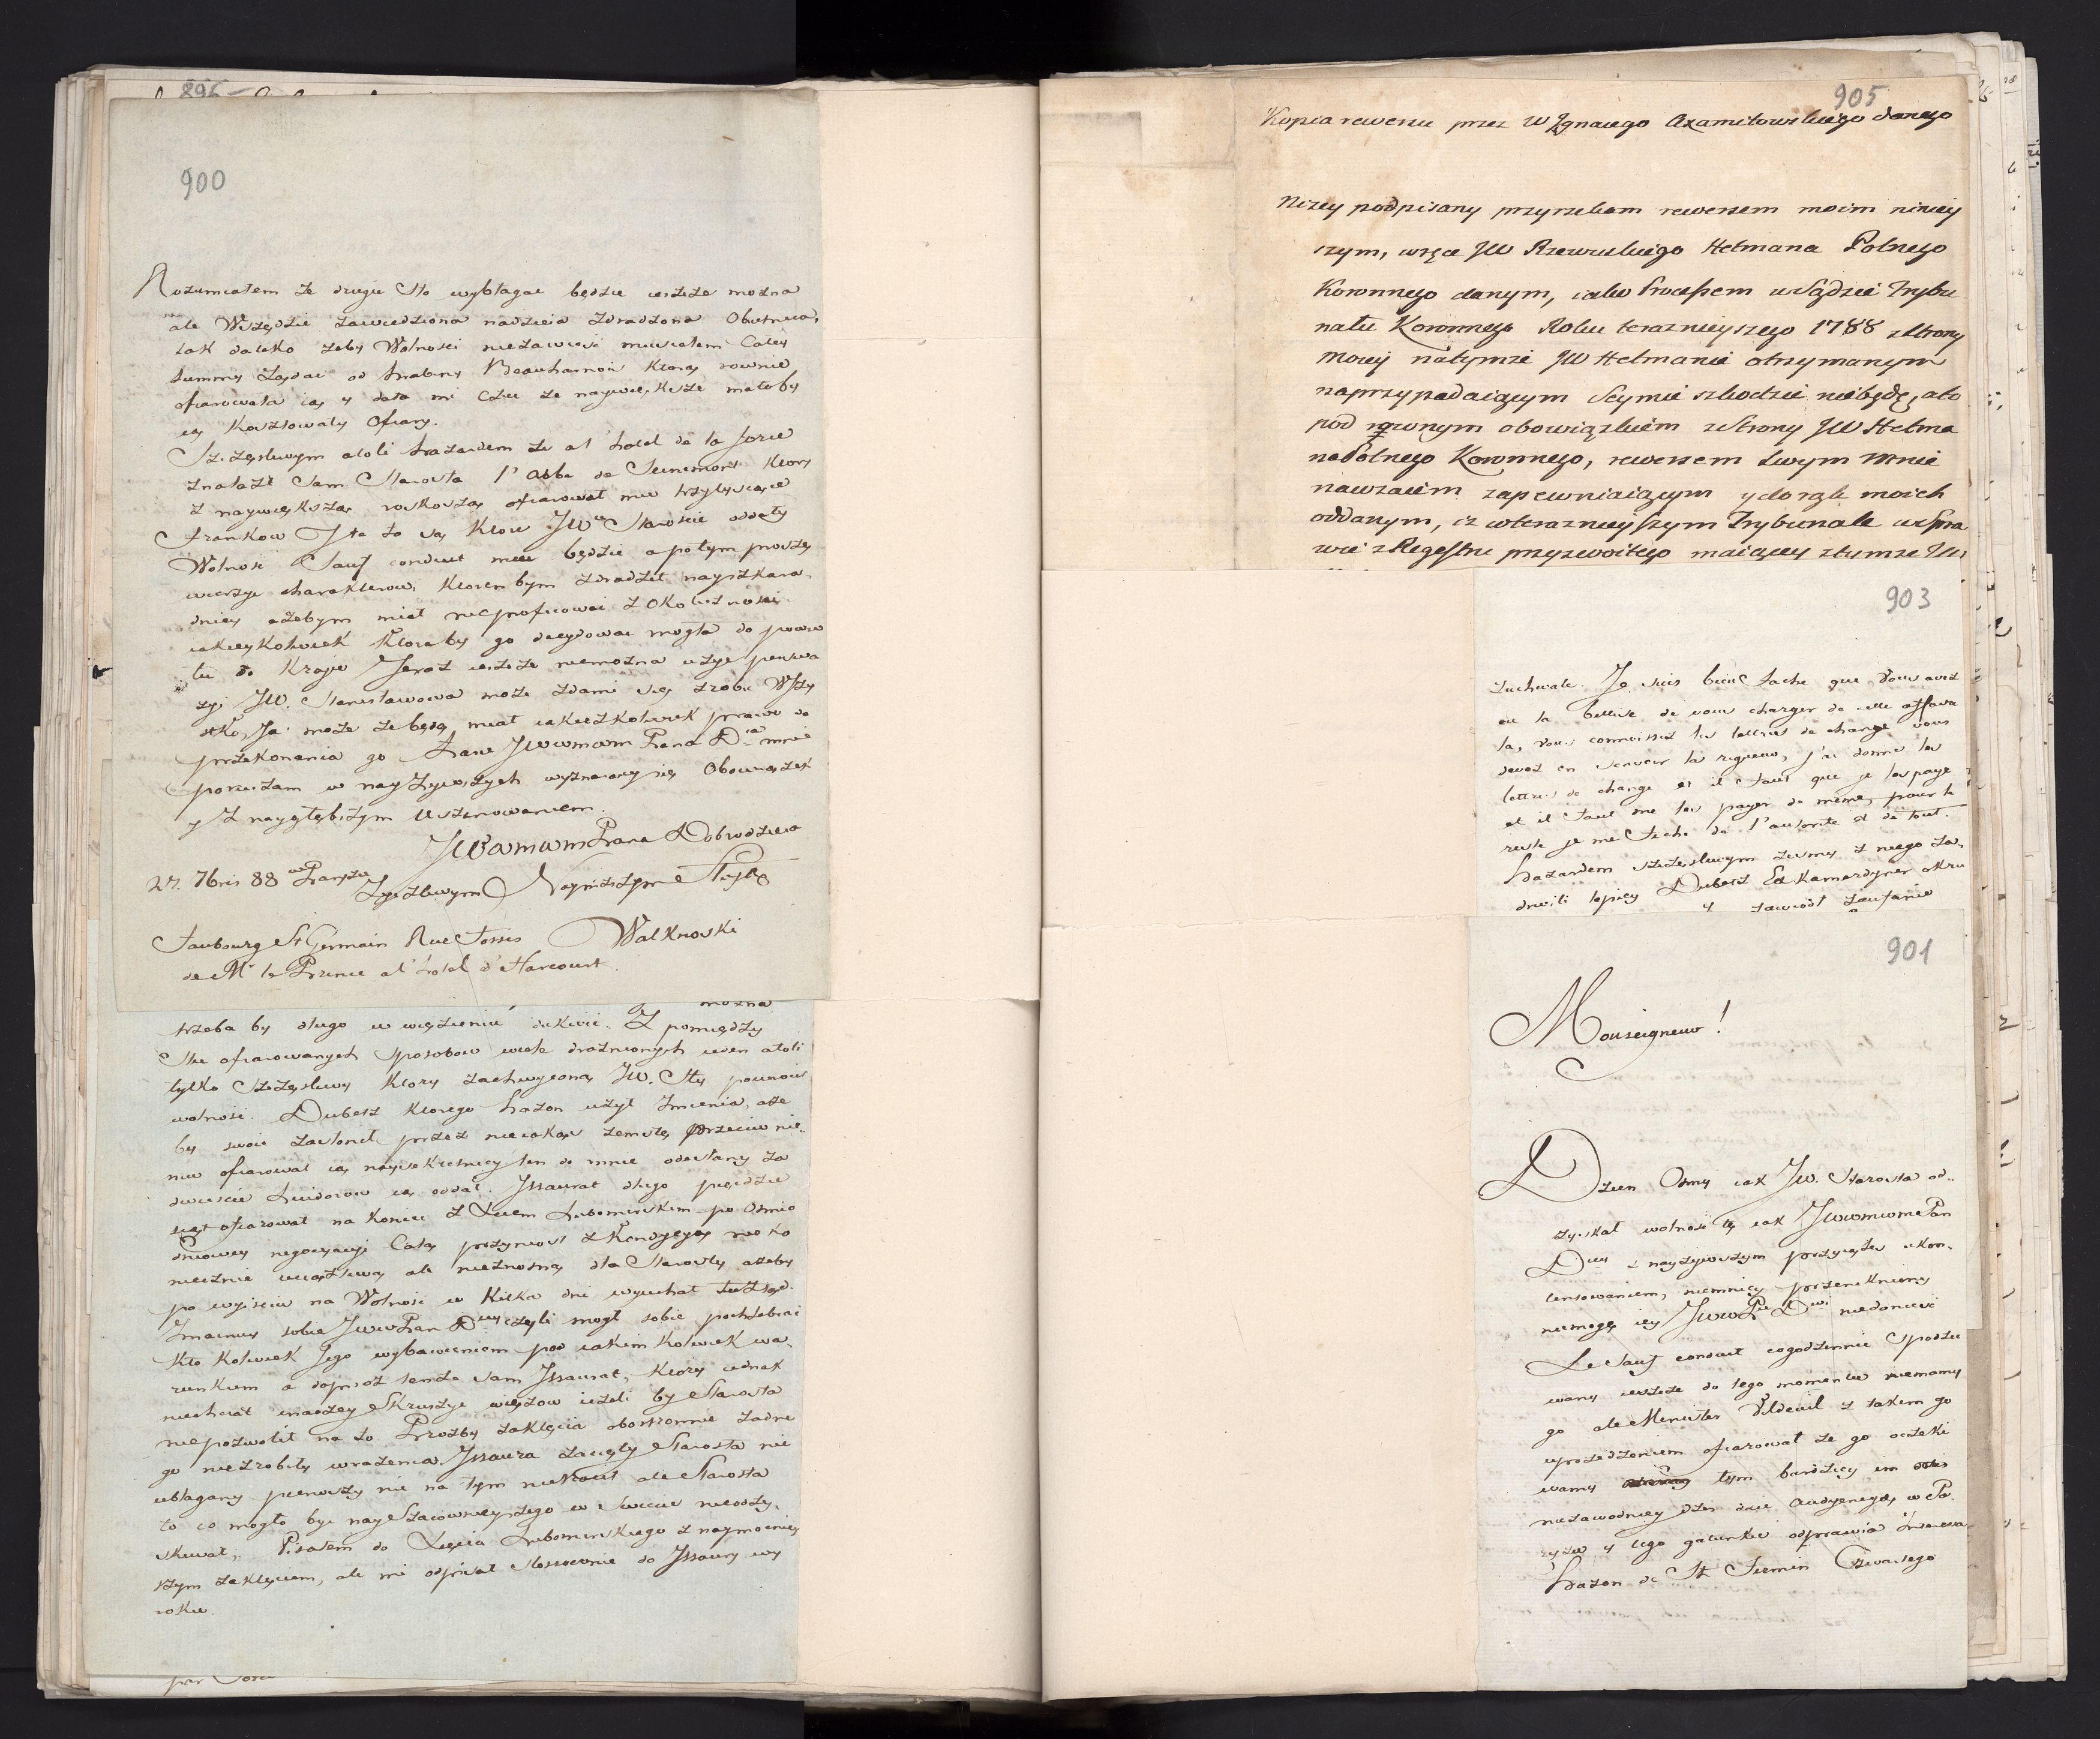 896
900
Rozumiałem że drugie Sto wybłagać będzie ieszcze można
ale Wszędzie zawiedziona nadzieia zdradzona Obietnica,
tak daleko żeby Wolności nie zawiesić musiałem Całey
Summy żądać od hrabiny Beauharnois Ktorą rownie
ofiarowała ią y dała mi czuć że naywiększe małoby
ią Kosztowały Ofiary.
Szczęsliwym atoli hazardem że a l'hotel de la force
znalazł Sam Starosta l'Abbe de Kłory
z naywiększą roskoszą ofiarował mu trzytysiące
frankow J te to są Ktore JWo Staroscie oddały
Wolnosć Sauf conduit mieć będzie a potym proszę
wierzyć charakterowi Ktoren bym zdradził nayszkara
dniey ażebym miał nie profitować z Okoliczności
iakieykolwiek Ktoraby go decydować mogła do powro
tu do Kraju Jeraz ieszcze niemożna użyć perswa
zyi JW. Stanisławowa może zdami się zrobić Wszy
stko, Ja może że będę miał iakieżkolwiek prawo do
przekonania go Łasce JWWMWM Pana D.ia mnie
poruczam w nayżywszych wyznawany się Obowiązek
y z naygłębszym Uszanowaniem.
JWWmwm Pana Dobrodzieia
27. 7bris 88 w Paryżu
Życzliwym Nayniższym Sługą
Faubourg St Germain Rue Fosses Walknowski
de Mr le Prince a l'hotel d'Harcourt.
można
trzeba by długo w więzieniu . Z pomiędzy
Stu ofiarowanych Sposobow wiele drażnionych ieden atoli
tylko Szczęsliwy Ktory zachwyconą JW. Sty powrocił
wolność. Dubesz Ktorego hazon użył Imienia, aże
by swoie zasłonił przez nieiakąś zemstę przeciw nie
mu ofiarował ią naysekretniey ten do mnie odesłany za
dwiescie Luidorow ią oddał. Issaurat długo pięcdzie
siąt ofiarował na koniec z Xiem Lubomirskim po Osmio
dniowey negocyacyi Całą przyniosł z Kondycyą nie ko
niecznie uciążliwą ale nieznosną dla Starosty ażeby
po wyjściu na Wolność w Kilka dni wyiechał
Imainuy sobie JWWPan Dziey czyli mogł sobie pochlebiać
kto kolwiek Jego wybawieniem pod iakim kolwiek wa
runkiem a dopiroż tenże Sam Issaurat, Ktory iednak
niechciał inaczey Skruszyć więzow ieżeli by Starosta
niepozwolił na to. Prozby zaklęcia obostronnie żadne
go niezrobiły wrażenia Issaura zacięty Starosta nie
ubłagany pierwszy nic na tym niestracił ale Starosta
to co mogło być nayszacownieyszego w Swiecie nieodzy
skiwał; Pisałem do Xięcia Lubomirskiego z naymocniey
szym zaklęciem, ale mi odpisał stossownie do Issaury wy
roku.
905
Kopia rewersu przez W Ignacego Axamitowskiego danego
Nizey podpisany przyrzekam rewersem moim niniey
szym, w ręce JW Rzewuskiego Hetmana Polnego
Koronnego danym, iako Processem w Sądzie Trybu
nału Koronnego Roku teraznieyszego 1788 z Strony
moiey na tymże JW Hetmanie otrzymanym
na przypadaiącym Seymie szkodzić niebędę, a to
pod rownym obowiązkiem z Strony JW Hetma
na Polnego Koronnego, rewersem swym mnie
nawzaiem zapewniaiącym y do rąk moich
oddanym, iz w teraznieyszym Trybunale w Spra
wie z Regestru przyzwoitego maiącey z tymże JW
903
zuchwale. Je suis bien faché que Vous avez
eu la betise de vous charger de cette affaire
la, vous connoissez les lettres de change vous
devez en scavoir la rigueur, j'ai donné les
lettres de change et il faut que je les paye
et il faut me les payer de meme, pour le
reste je me fiche de l'autorité et de tout.
hazardem szczęsliwym żeśmy z niego za
drwili lepiey Dubesz Ex Kamerdyner okru
y zawiosł zaufanie
901
Monseigneur!
Dzien Osmy iak JW. Starosta od
zyskał wolność tę iak JWWMWM Pan
Dziey z nayżywszym przyiąłeś ukon
tentowaniem, niemniey przenikniony
niemogę iey JWWPu Dwi niedonieść
Le Sauf conduit cogodzinnie Spodzie
wany ieszcze do tego momentu niemamy
go ale Minister Vildeuil z takim go
uprzedzeniem ofiarował że go oczeki
wamy tym bardziey im
niezawodniey dziś daie Audyencyą w Pa
ryżu y tego gatunku odprawia interessa
hazon de St Firmin Czwartego